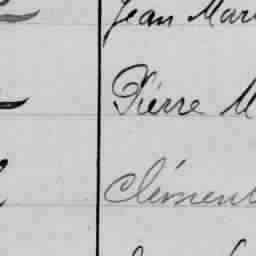 Jean Mari
Pierre M
Clément